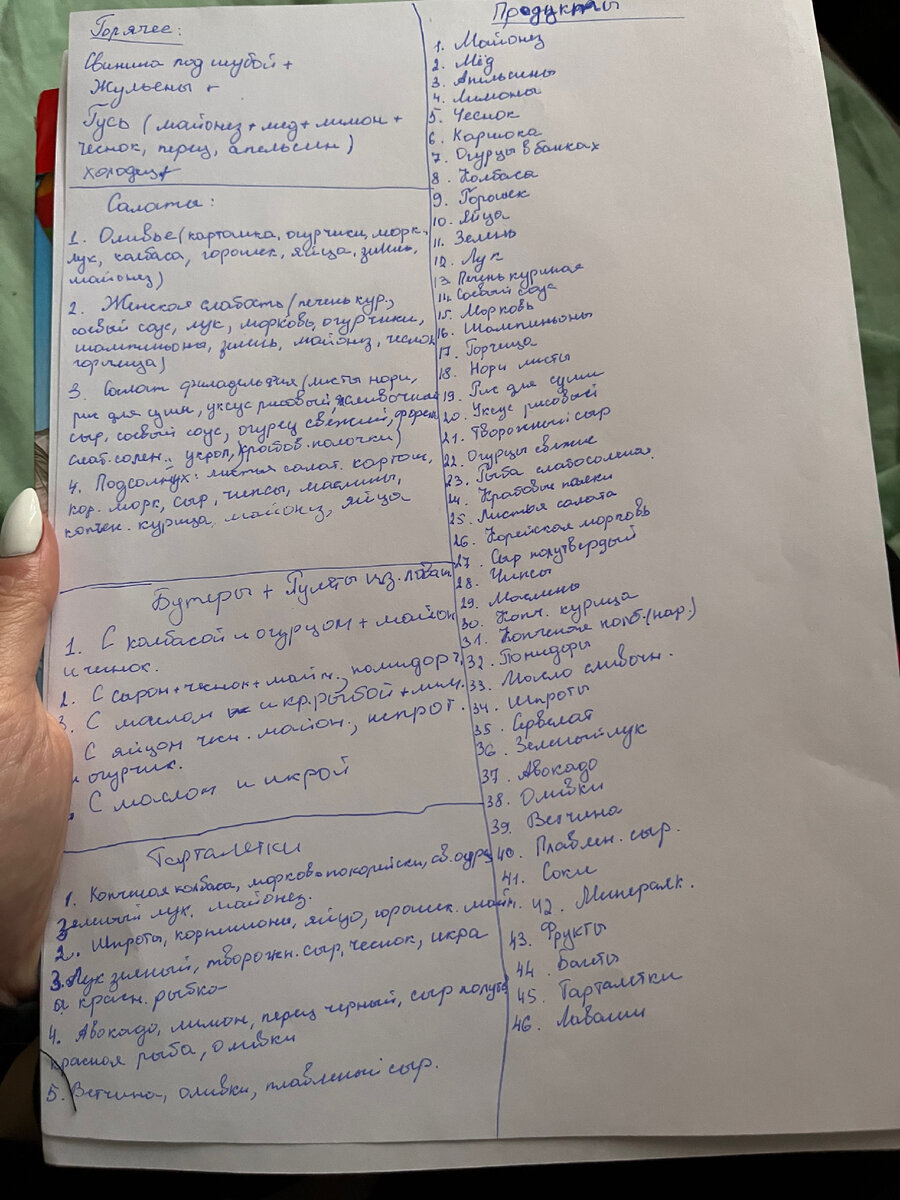 Горячее:
Свинина под шубой +
Жульены +
Гусь (майонез + мед + лимон +
чеснок, перец, апельсин)
холодец+
Салаты:
1. Оливье (картошка, огурчики, морк.,
лук, колбаса, горошек, яйца, зелень,
майонез)
2. Женская слабость (печень кур.,
соевый соус, лук, морковь, огурчики,
шампиньоны, зелень, майонез, чеснок
горчица)
3. Салат филадельфия (листы нори,
рис для суши, уксус рисовый, сливочный
сыр, соевый соус, огурец свежий, форел
слаб. солен., укроп, крабов. палочки)
4. Подсолнух: листья салат. картош,
кор. морк, сыр, чипсы, маслины,
копчен. курица, майонез, яйца
Бутеры + Рулеты из лаваш
1. С колбасой и огурцом + майон
и чеснок.
2. С сыром + чеснок + майн., помидор
3. С маслом и кр. рыбой + лим.
С яйцом чесн. майон., шпрот.
и огурчик.
С маслом и икрой
Тарталетки
1. Копченая колбаса, морковь по корейски, св. огурец
Зеленый лук, майонез.
2. Шпроты, корнишоны, яйцо, горошек. майн.
3. Лук зеленый, творожн. сыр, чеснок, икра
красн. рыбка
4. Авокадо, лимон, перец черный, сыр полутв
красная рыба, оливки
5. Ветчина, оливки, плавленый сыр.
Продукты
1. Майонез
2. Мёд
3. Апельсины
4. Лимоны
5. Чеснок
6. Картошка
7. Огурцы в банках
8. Колбаса
9. Горошек
10. Яйца
11. Зелень
12. Лук
13. Печень куриная
14. Соевый соус
15. Морковь
16. Шампиньоны
17. Горчица
18. Нори листы
19. Рис для суши
20. Уксус рисовый
21. Творожный сыр
22. Огурцы свежие
23. Рыба слабосоленая
24. Крабовые палки
25. Листья салата
26. Корейская морковь
27. Сыр полутвердый
28. Чипсы
29. Маслины
30. Копч. курица
31. Копченая колб. (нар.)
32. Помидоры
33. Масло сливочн.
34. Шпроты
35. Сервелат
36. Зеленый лук
37. Авокадо
38. Оливки
39. Ветчина
40. Плавлен. сыр.
41. Соки
42. Минералк.
43. Фрукты
44.
45. Тарталетки
46. Лаваши